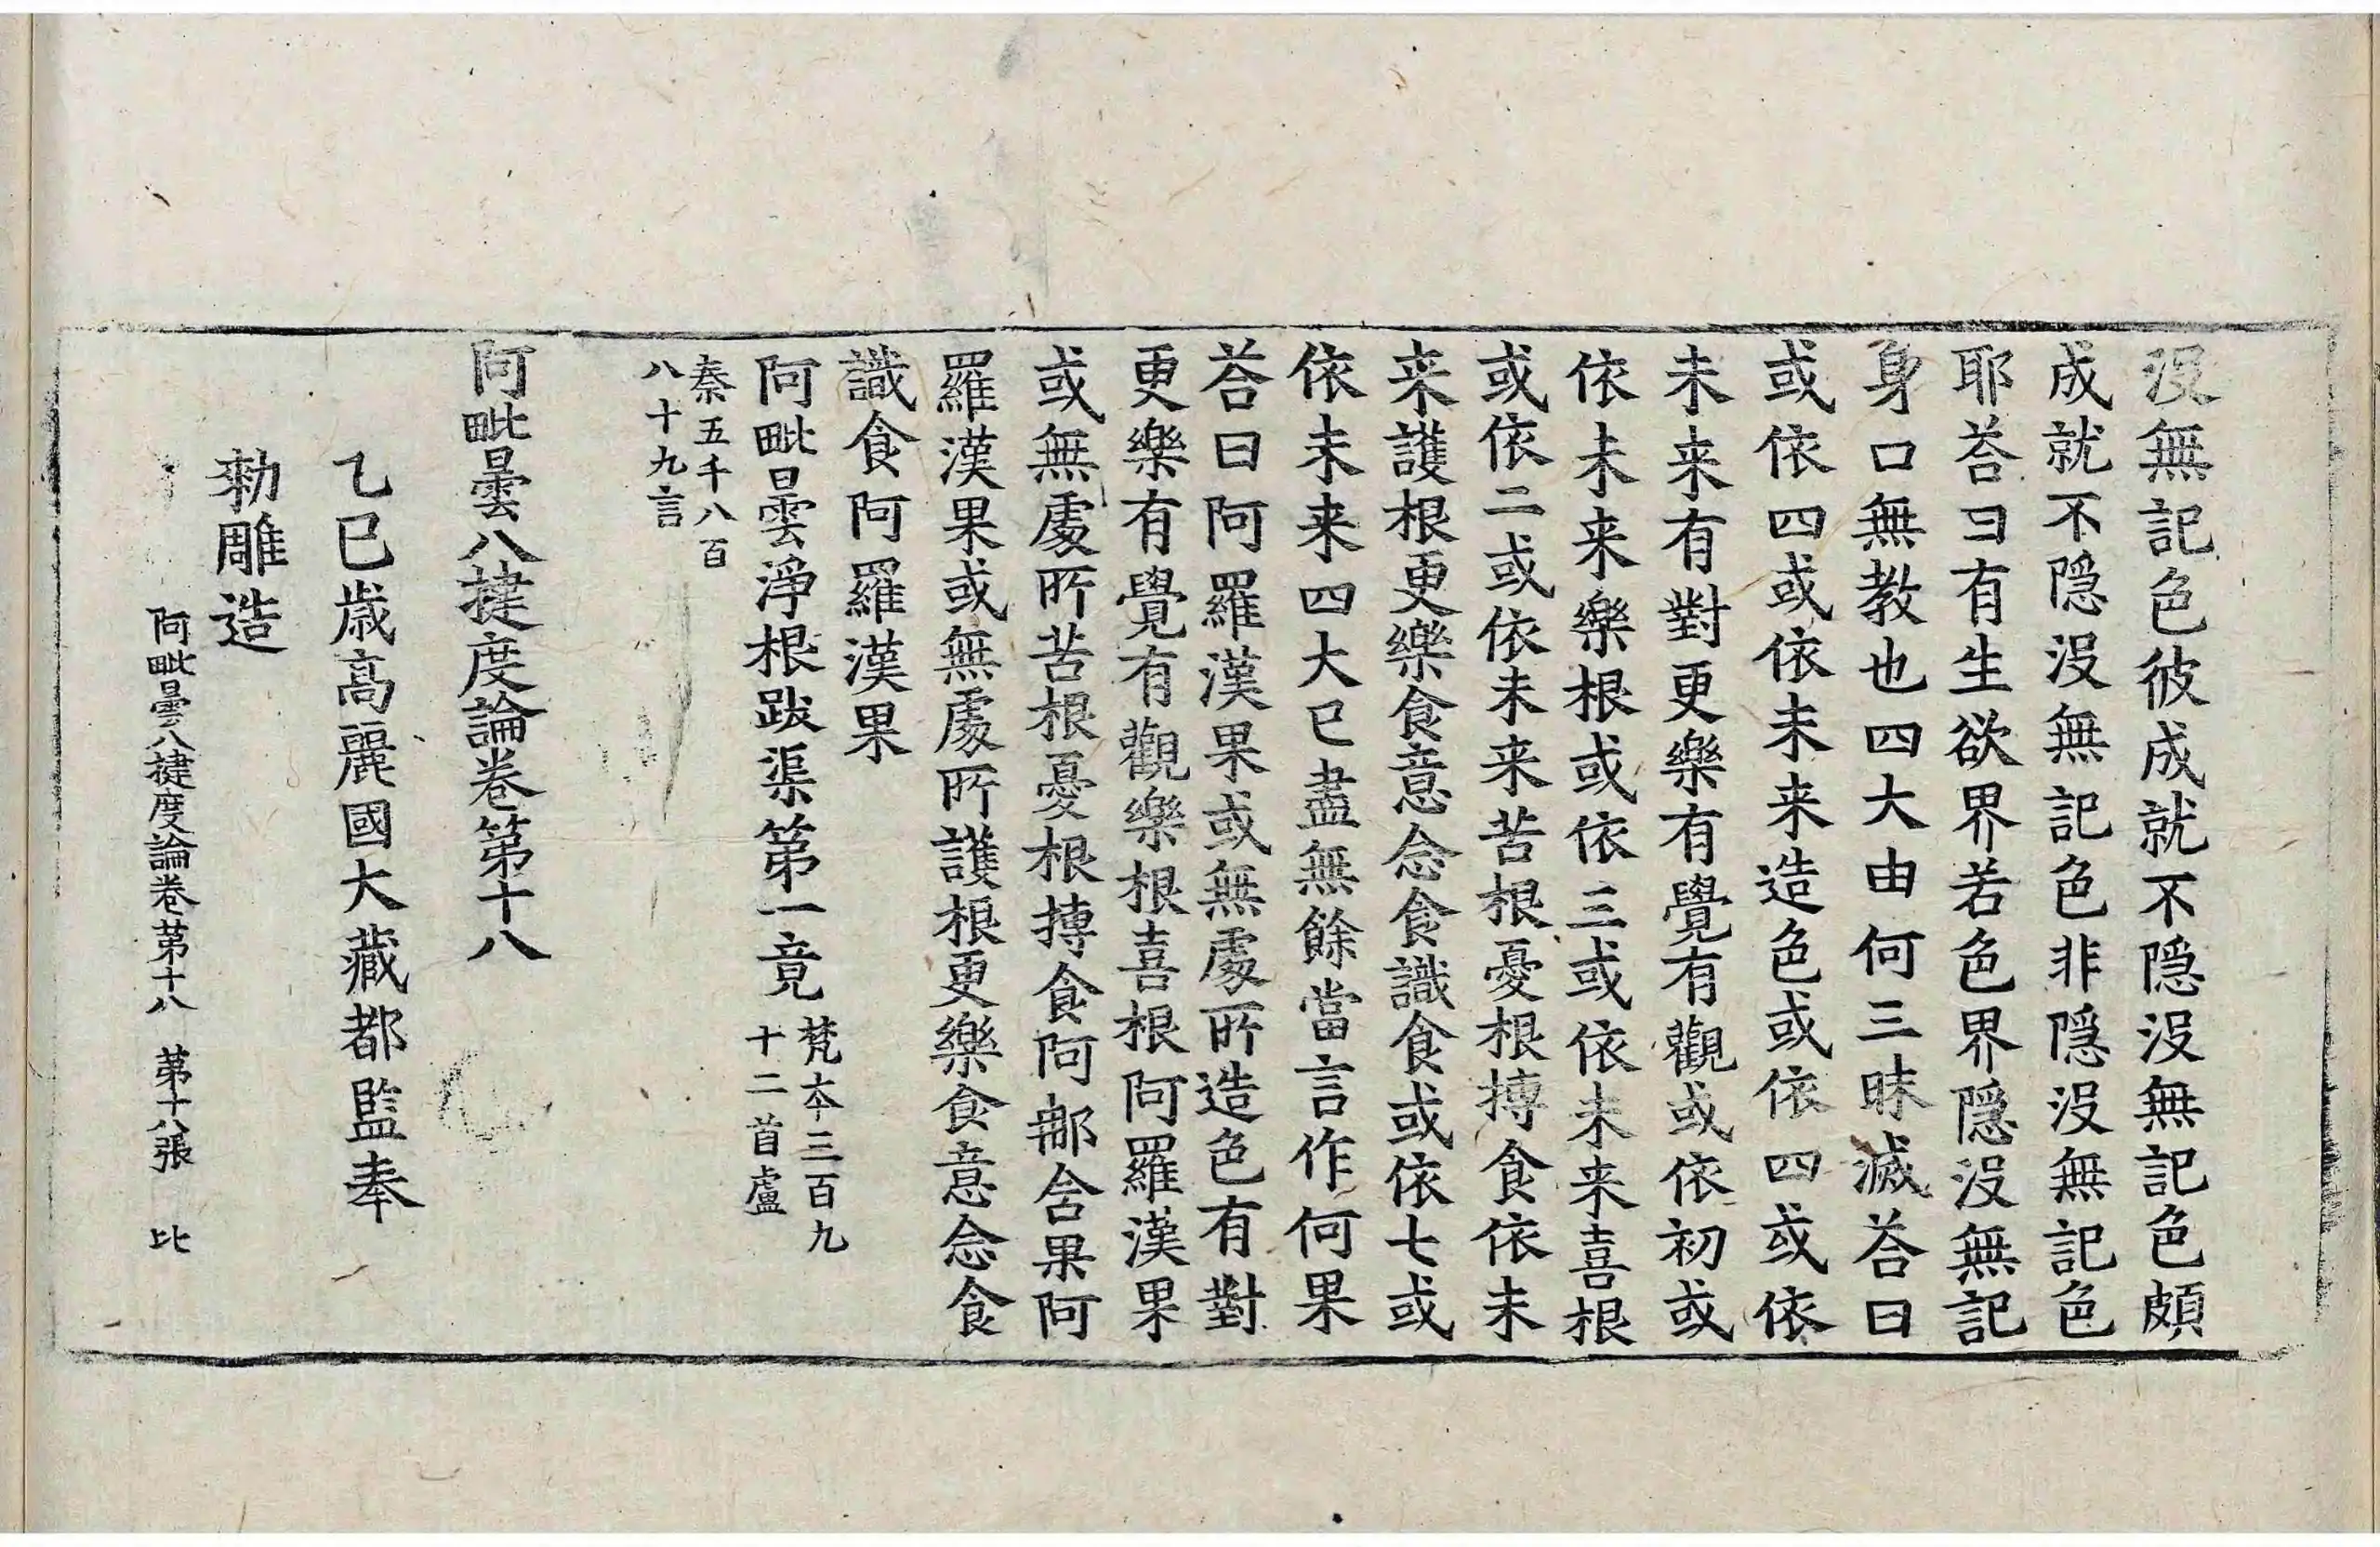 没無記色彼成就不隱没無記色頗
成就不隱没無記色非隱没無記色
耶荅曰有生欲界若色界隱没無記
身口無教也四大由何三昧滅荅曰
或依四或依未来造色或依四或依
未来有對更樂有覺有觀或依初或
依未来樂根或依三或依未来喜根
或依二或依未来苦根憂根摶食依未
来護根更樂食意念食識食或依七或
依未来四大已盡無餘當言作何果
荅曰阿羅漢果或無處所造色有對
更樂有覺有觀樂根喜根阿羅漢果
或無處所苦根憂根摶食阿那含果阿
羅漢果或無處所護根更樂食意念食
識食阿羅漢果
阿毗曇淨根跋渠第一竟 梵本三百九
十二首盧
秦五千八百
八十九言
阿毗曇八揵度論卷第十八
乙巳歲高麗國大藏都監奉
勑雕造
阿毗曇八揵度論卷第十八 第十八張 比